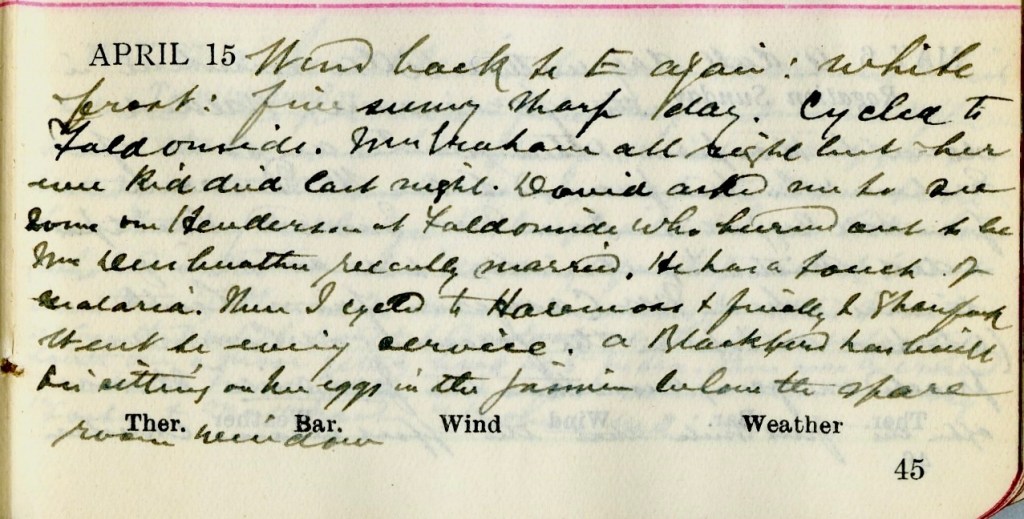 APRIL 15 Wind back to E again: white
frost: fine sunny sharp day. Cycled to
Faldonside. Mrs Graham all right but her
wee kid died last night. David asked me to see
some one Henderson at Faldonside who turned out to be
Mrs brother recently married. He has a touch of
malaria. Then I cycled to Haremoss & finally to
Went to evening service. A Blackbird has built
& is sitting on her eggs in the jasmin below the spare
room window
Ther. Bar. Wind Weather
45